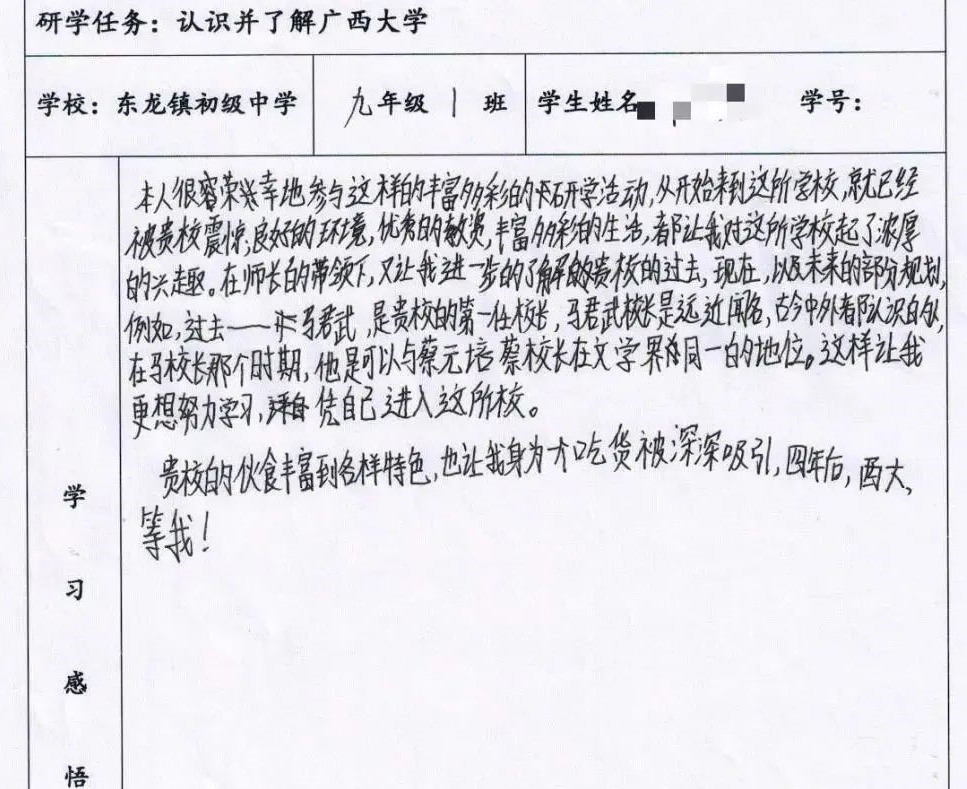 研学任务：认识并了解广西大学
学校：东龙镇初级中学 九年级 1 班 学生姓名 学号：
本人很荣幸地参与这样的丰富多彩的研学活动，从开始来到这所学校，就已经
被贵校震惊，良好的环境，优秀的教资，丰富多彩的生活，都让我对这所学校起了浓厚
的兴趣。在师长的带领下，又让我进一步的了解贵校的过去，现在，以及未来的部分规划，
例如，过去——马君武，是贵校的第一任校长，马君武校长是远近闻名，古今中外都认识的人，
在马校长那个时期，他是可以与蔡元培蔡校长在文学界同一的地位。这样让我
更想努力学习，凭自己进入这所校。
贵校的伙食丰富到各样特色，也让我身为吃货被深深吸引，四年后，西大，
等我！
学
习
感
悟